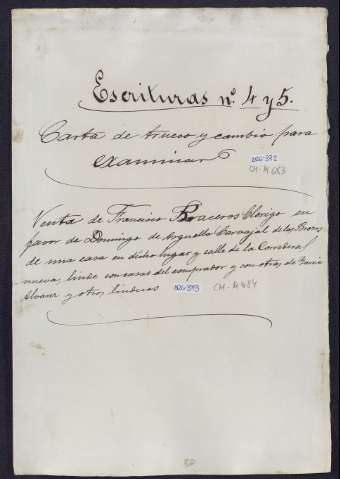 Escrituras nº. 4 y 5.
Carta de trueco y cambio para
examinar
CM-4483
Venta de Francisco Braceros Clérigo en
favor de Domingo de Arguello Carvajal de las
de una casa en dicho lugar y calle de la Corredera
nueva, linde con casas del comprador y con otras de Garcia
Alvarez y otros linderos CM-4484